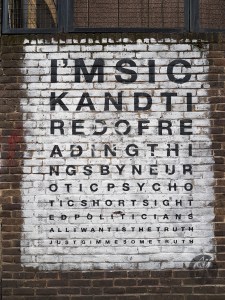 I'M SIC
KANDTI
REDOFRE
ADINGTHI
NGSBYNEUR
OTICPSYCHO
TICSHORTSIGHT
EDPOLITICIANS
ALLIWANTISTHETRUTH
JUSTGIMMESOMETRUTH